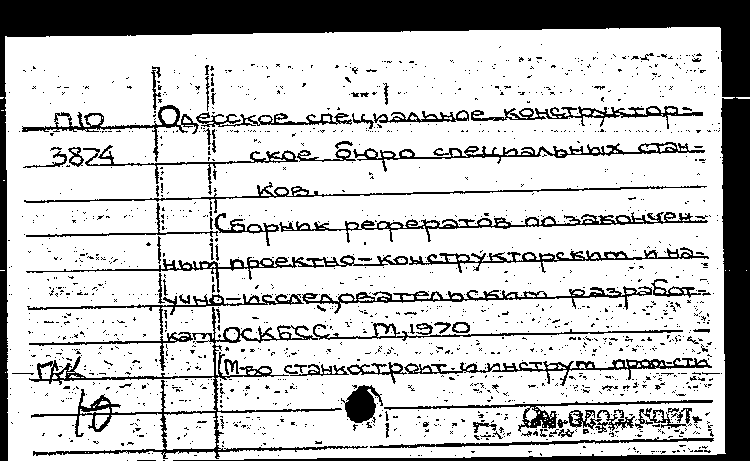 П10 Одесское специальное конструктор-
3874 ское бюро специальных стан-
ков.
Сборник рефератов по закончен-
ным проектно-конструкторским и на-
учно-исследовательским разработ-
кам ОСКБСС. М., 1970
(М-во станкостроит. и инструм. пром-сти
См. след. карт.